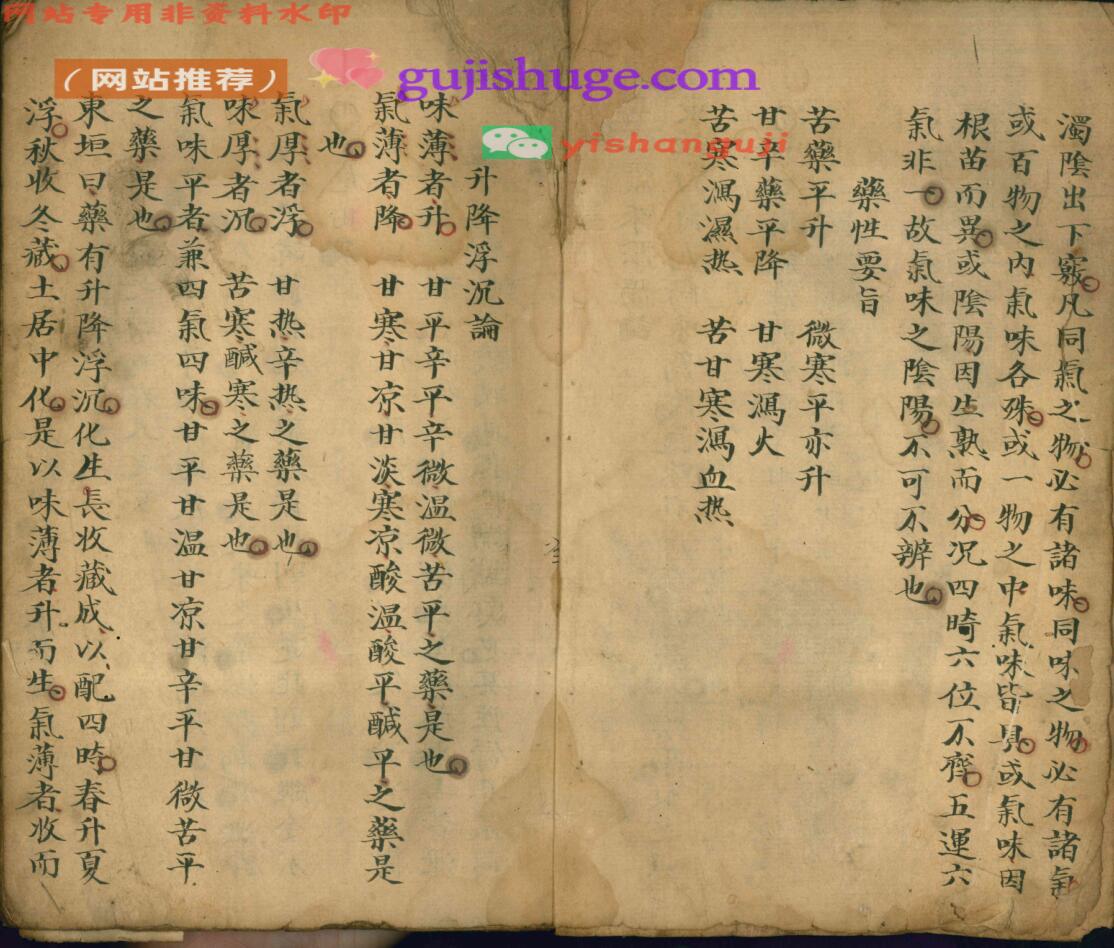 网站专用非资料水印
（网站推荐）
gujishuge.com
yishanguji
濁陰出下竅凡同氣之物必有諸味同味之物必有諸氣
或百物之内氣味各殊或一物之中氣味皆具或氣味因
根苗而異或陰陽因生熟而分况四時六位不齊五運六
氣非一故氣味之陰陽不可不辨也
藥性要旨
苦藥平升　微寒平亦升
甘辛藥平降　甘寒瀉火
苦寒瀉濕热　苦甘寒瀉血热
升降浮沉論
味薄者升　甘平辛平辛微温微苦平之藥是也
氣薄者降　甘寒甘凉甘淡寒凉酸温酸平鹹平之藥是
也
氣厚者浮　甘热辛热之藥是也
味厚者沉　苦寒鹹寒之藥是也
氣味平者兼四氣四味甘平甘温甘凉甘辛平甘微苦平
之藥是也
東垣曰藥有升降浮沉化生長收藏成以配四時春升夏
浮秋收冬藏土居中化是以味薄者升而生氣薄者收而